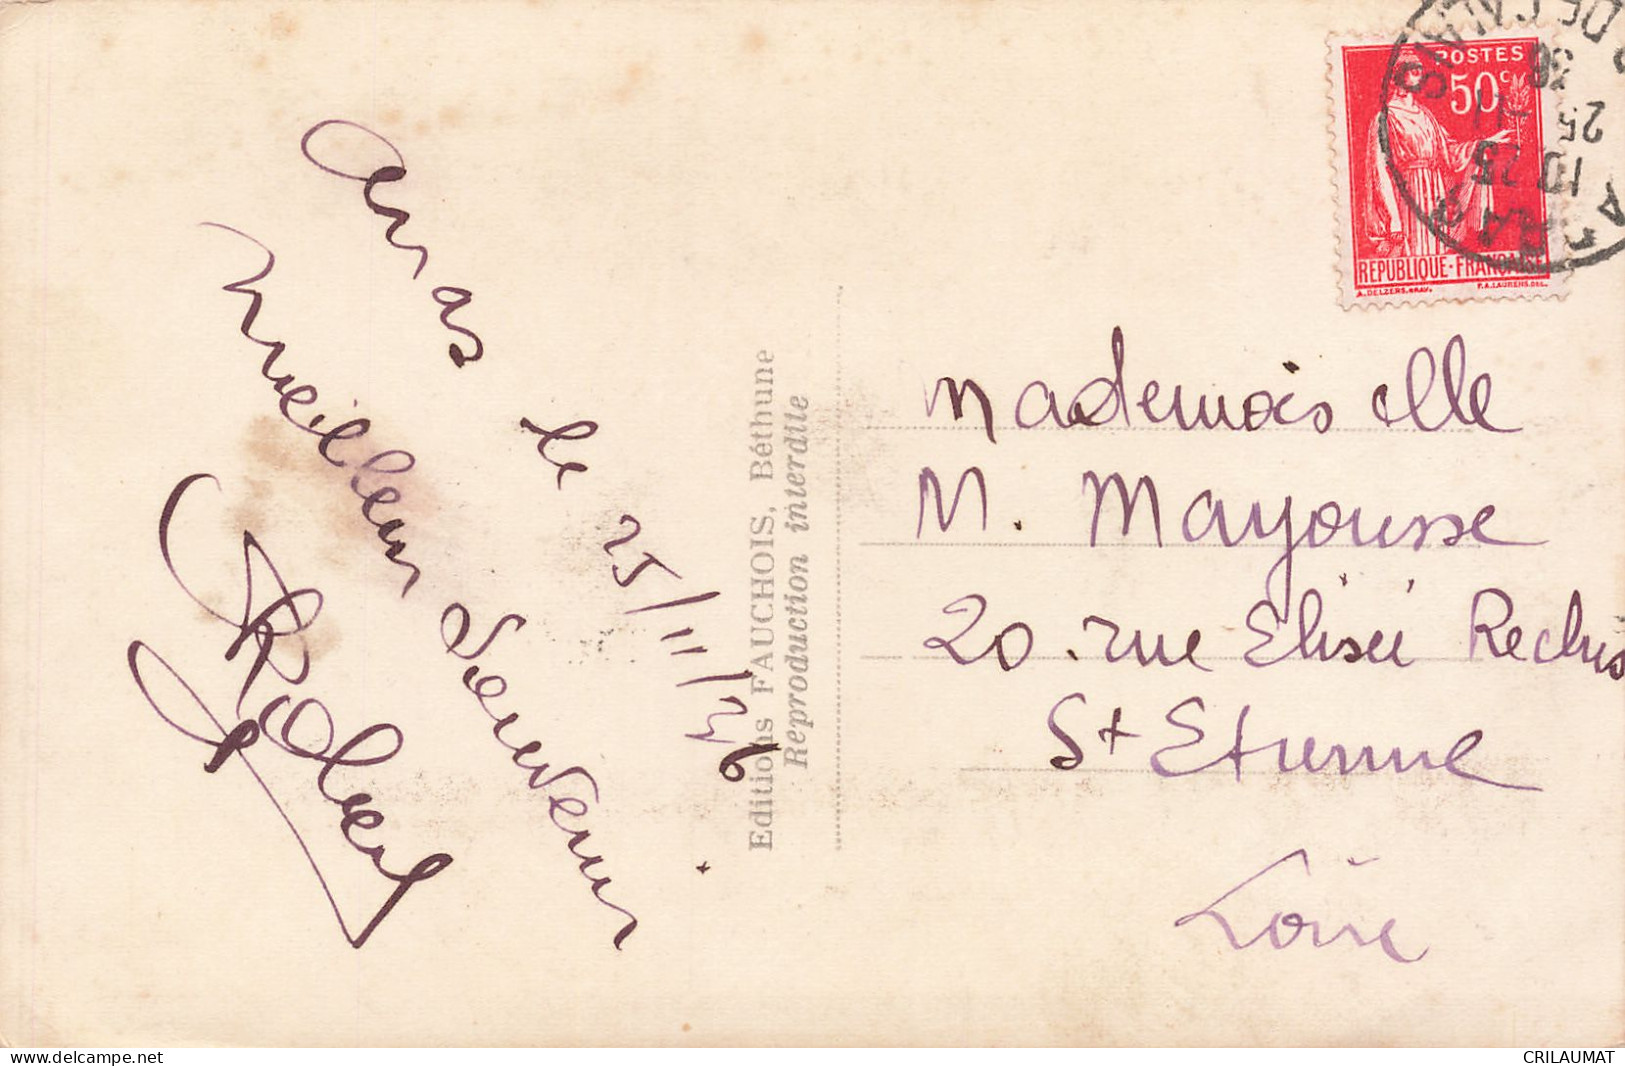 Arras le 25/11/36
Meilleur Souvenir
Robert
Editions FAUCHOIS, Béthune
Reproduction interdite
POSTES
50c
REPUBLIQUE-FRANÇAISE
A.DELZERS.GRAV. P.A.LAURENS.DEL.
ARRAS
10 25
25 11
36
DE CALAIS
Mademoiselle
M. Mayousse
20 rue Elisée Reclus
St Etienne
Loire
CRILAUMAT